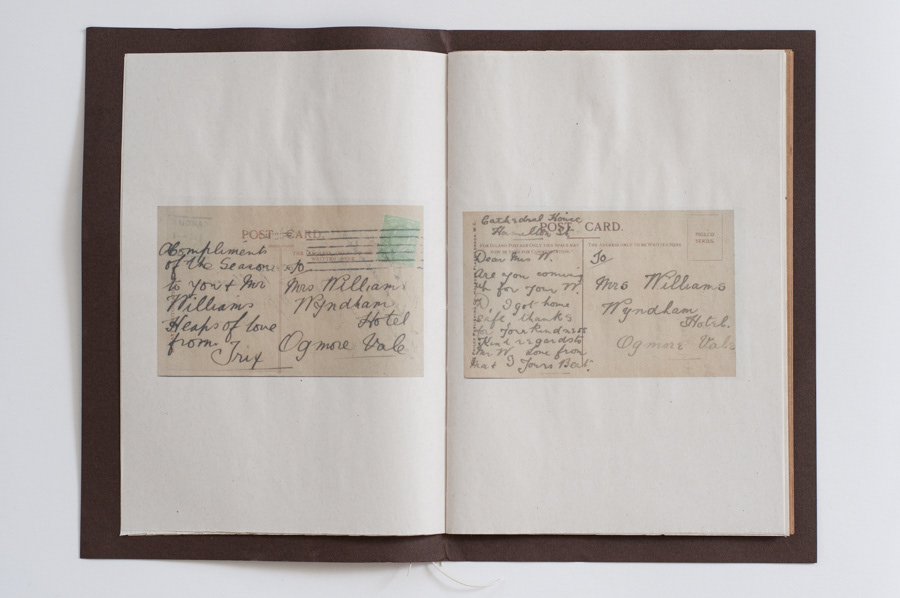 POST CARD.
Compliments
of the Season
to you & Mr
Williams
Heaps of love
from Trix
To
Mrs Williams
Wyndham
Hotel
Ogmore Vale
Cathedral House
Hamilton St
POST CARD.
Dear Mrs W.
Are you coming
up for your
I got home
safe thanks
for Your Kindness
Kind regards to
Mr W. Love from
I Yours Bert.
THE ADDRESS ONLY TO BE WRITTEN HERE
To
Mrs Williams
Wyndham
Hotel.
Ogmore Vale